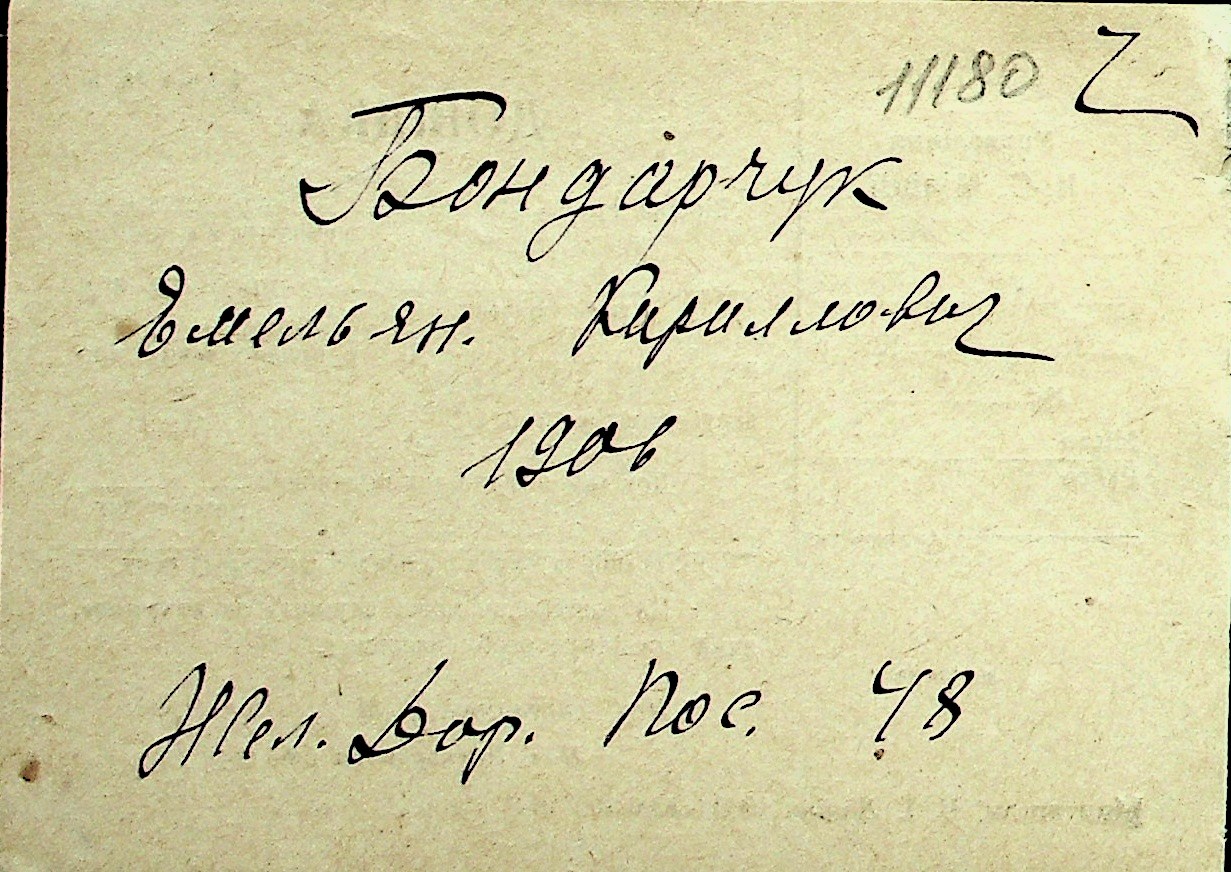 11180
Бондарчук
Емельян. Кириллович
1906
Жел. Дор. Пос. 48